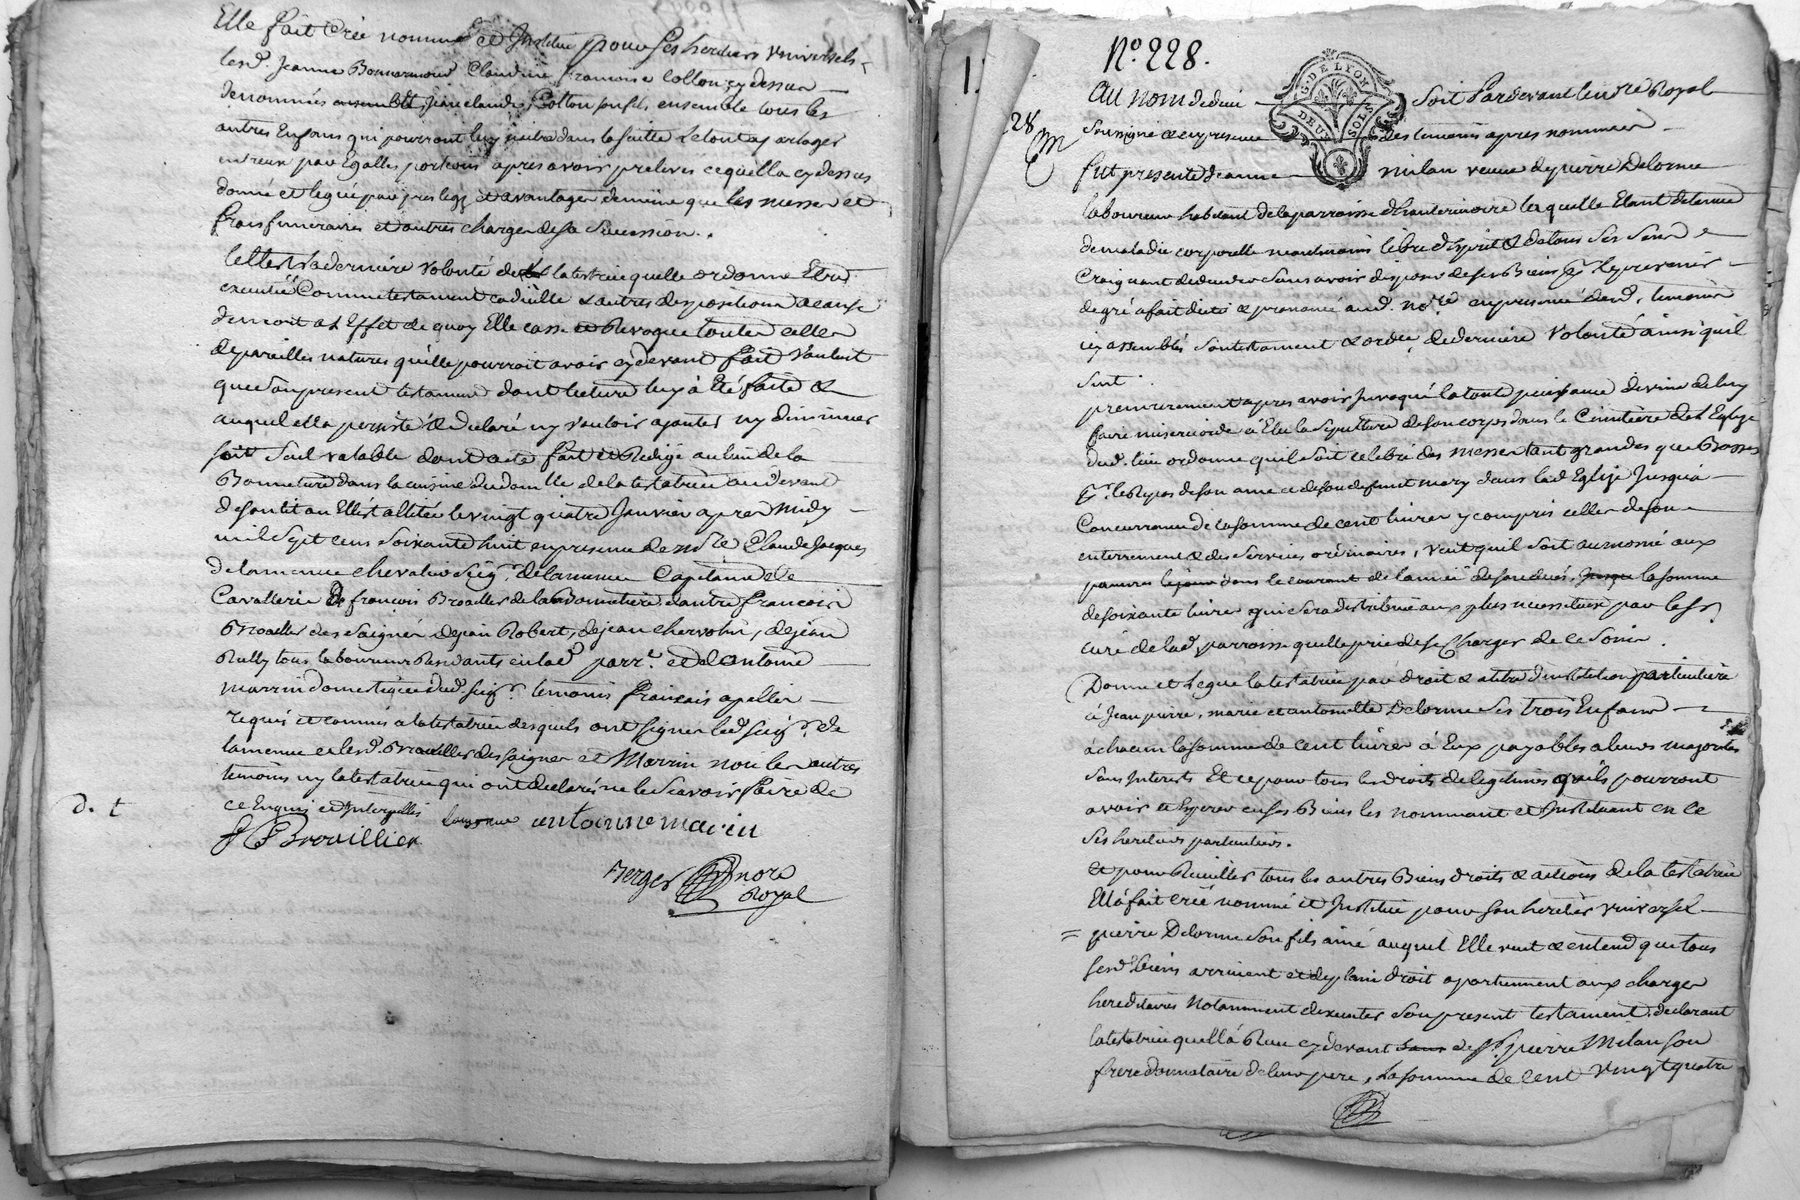 Elle fait Créé nommé et Institué pour ses heritiers universels
lesd. Jeanne Claudine francoise Collon cy dessus
denommées Jean claude Collon son fils ensemble tous les
autres Enfans qui pourront luy naitre dans la suitte Le tout a partager
entreux par Egalles portions apres avoir prelevés ce quelle a cy dessus
donné et legué par preslegs et avantages de même que les messes et
frais funeraires et autres charges de sa Succession.
telle est la derniere volonté de la testatrice quelle ordonne Etre
executée Comme testament codicille & autres dispositions a cause
de mort a L'Effet de quoy Elle casse et Revoque toutes celles
de pareilles natures quelle pourroit avoir cy devant fait Voulant
que son present testament dont lecture luy à Eté faite &
auquel elle persiste & declaré ny vouloir ajouter ny diminuer
soit Seul valable dont acte fait et Redigé au lieu de la
Bonnetiere dans la cuisine du domlle de la testatrice au devant
de son lit ou Elle est alitée le vingt quatre Janvier apres midy
mil Sept cens Soixante huit en presence de Claude Jacques
de lamenue chevalier Seigr. de lamenue Capitaine de
Cavallerie de francois Broailler de la Bonnetiere d'autre francois
Broailler des Saigne de jean Robert, de jean chervolin, de jean
Rully tous laboureurs Residants en lad. parr. et d'antoine
marrin domestique dud. seigr. temoins francais apellés
requis et connus a la testatrice desquels ont signer led. seigr. de
lamenue et lesd. Broailler des saigner et Marrin non les autres
temoins ny la testatrice qui ont declarés ne le Scavoir faire de
ce Enquis et Interpellés Lamenue antoinne marin
d. t
Brouillier
Berger nore
Royal
No. 228.
G. DE LYON
DEUX SOLS
28
Au nom de dieu Soit Pardevant le nre Royal
Soussigné & en presence des temoins apres nommés
fut presente Jeanne milan veuve de pierre Delorme
laboureur habitant de la parroisse laquelle Etant detenue
de maladie corporelle neanmoins libre d'Esprit & de tous ses sens &
Craignant de deceder sans avoir disposé de ses Biens pr. le prevenir
de gré a fait dicté & prononcé aud. nore. en presence desd. temoins
icy assemblés son testament & ordce. de derniere volonté ainsi quil
suit.
premierement apres avoir invoqué la toute puissance divine de luy
faire misericorde a Elu la Sepulture de son corps dans le Cimitiere de l'Eglise
dud. lieu ordonne quil soit celebré des messes tant grandes que Basses
pr. le Repos de son ame et de son defunt mary dans lad. Eglise Jusqu'à
Concurrance de la somme de cent livres y compris celles de son
enterrement & des services ordinaires, veut quil soit aumoné aux
pauvres dans le courant de lannée de son decés la somme
de soixante livres qui sera distribuée aux plus necessiteux par le sr.
curé de lad. parroisse quelle prie de se Charger de ce Soin.
Donne et Legue la testatrice par droit & titre d'institution particuliere
à Jean pierre, marie et antoinette Delorme ses trois Enfans
à chacun la somme de cent livres à Eux payables a leurs majorités
sans Interests Et ce pour tous les droits de legitimes qu'ils pourront
avoir et Esperer en ses Biens les nommant et Instituant en ce
ses heritiers particuliers.
et pour Receuiller tous les autres Biens droits & actions de la testatrice
Elle a fait créé nommé et Institué pour son heritier universel
= pierre Delorme son fils ainé auquel Elle veut & entend que tous
sesd. biens arrivent et de plain droit apartiennent aux charges
hereditaires Notamment d'executer son present testament. declarant
la testatrice quelle à Reçu cy devant de Sr. pierre Milan son
frere donnataire de leur pere, La somme de Cent vingt quatre